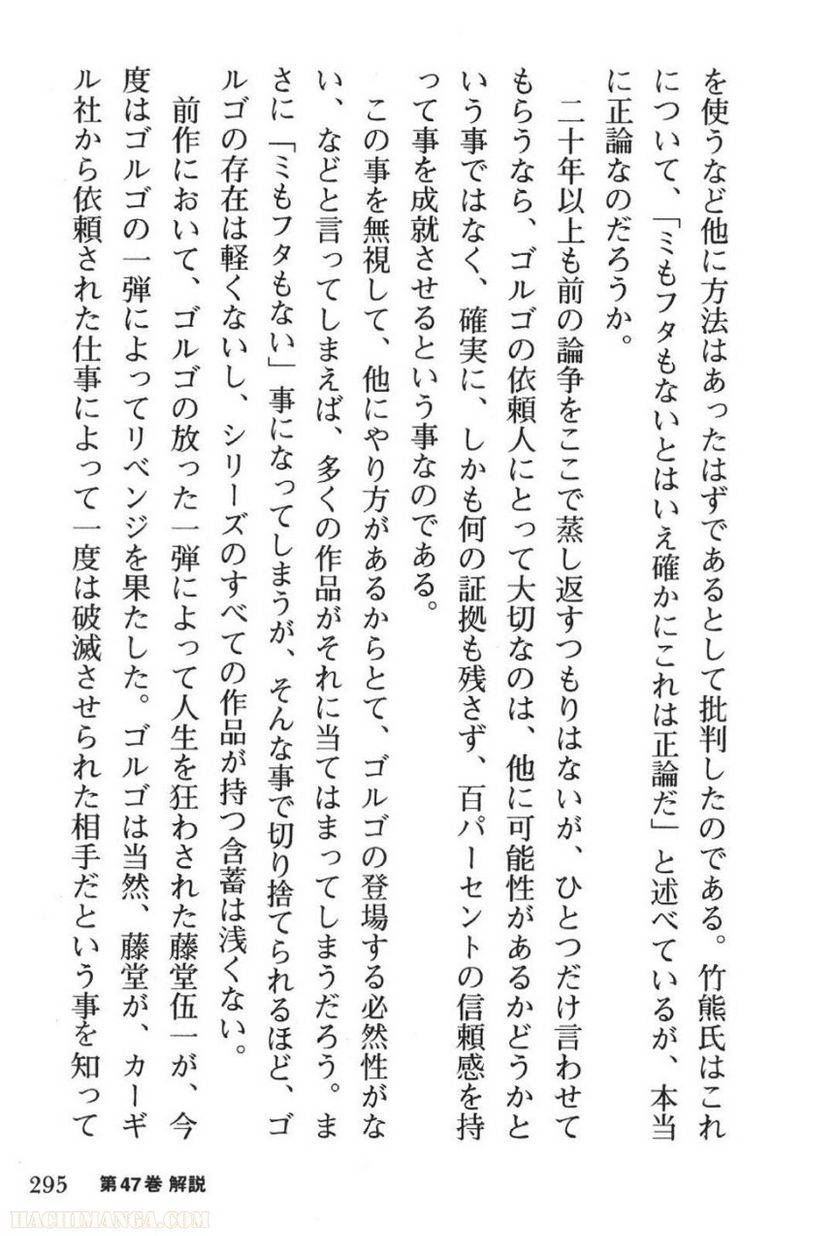 を使うなど他に方法はあったはずであるとして批判したのである。竹熊氏はこれ
について、「ミもフタもないとはいえ確かにこれは正論だ」と述べているが、本当
に正論なのだろうか。
二十年以上も前の論争をここで蒸し返すつもりはないが、ひとつだけ言わせて
もらうなら、ゴルゴの依頼人にとって大切なのは、他に可能性があるかどうかと
いう事ではなく、確実に、しかも何の証拠も残さず、百パーセントの信頼感を持
って事を成就させるという事なのである。
この事を無視して、他にやり方があるからとて、ゴルゴの登場する必然性がな
い、などと言ってしまえば、多くの作品がそれに当てはまってしまうだろう。ま
さに「ミもフタもない」事になってしまうが、そんな事で切り捨てられるほど、ゴ
ルゴの存在は軽くないし、シリーズのすべての作品が持つ含蓄は浅くない。
前作において、ゴルゴの放った一弾によって人生を狂わされた藤堂伍一が、今
度はゴルゴの一弾によってリベンジを果たした。ゴルゴは当然、藤堂が、カーギ
ル社から依頼された仕事によって一度は破滅させられた相手だという事を知って
295 第47巻 解説
HACHIMANGA.COM